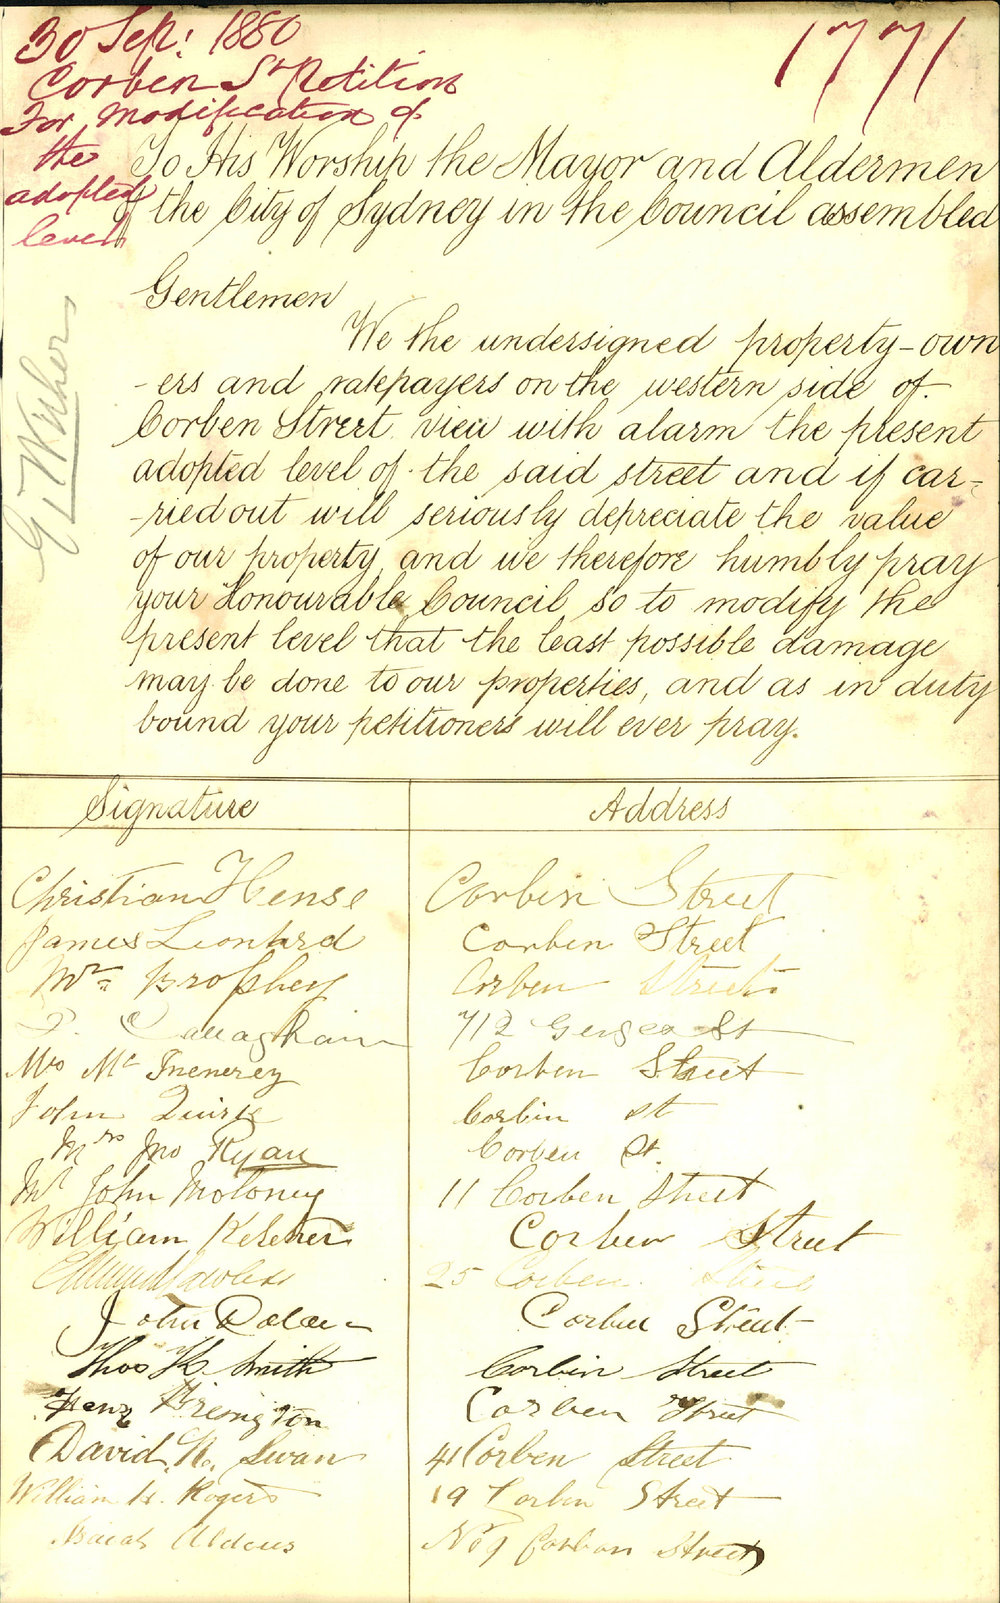 30 Sep: 1880
1771
Corbin St Petition
For Modification of
the
adopted
level
To His Worship the Mayor and Aldermen
of the City of Sydney in the Council assembled
Gentlemen
We the undersigned property-own
-ers and ratepayers on the western side of
Corben Street view with alarm the present
adopted level of the said street and if car-
-ried out will seriously depreciate the value
of our property, and we therefore humbly pray
your Honourable Council so to modify the
present level that the least possible damage
may be done to our properties, and as in duty
bound your petitioners will ever pray.
Signature Address
Christian Hense Corbin Street
James Leonard Corben Street
Mrs Brophey Corben Street
P. Callaghan 712 George St
Mrs Mc Inenerey Corben Street
John Quirk Corbin St
Mrs Jno Ryan Corben St.
Mr John Moloney 11 Corben Street
William Corben Street
25 Corben Street
John Dolan Corben Street
Thos H Smith Corbin Street
Brenington Corben Street
David N. Swan 41 Corben Street
William H. Rogers 19 Corbin Street
Isaiah Aldous No 9 Corbon Street